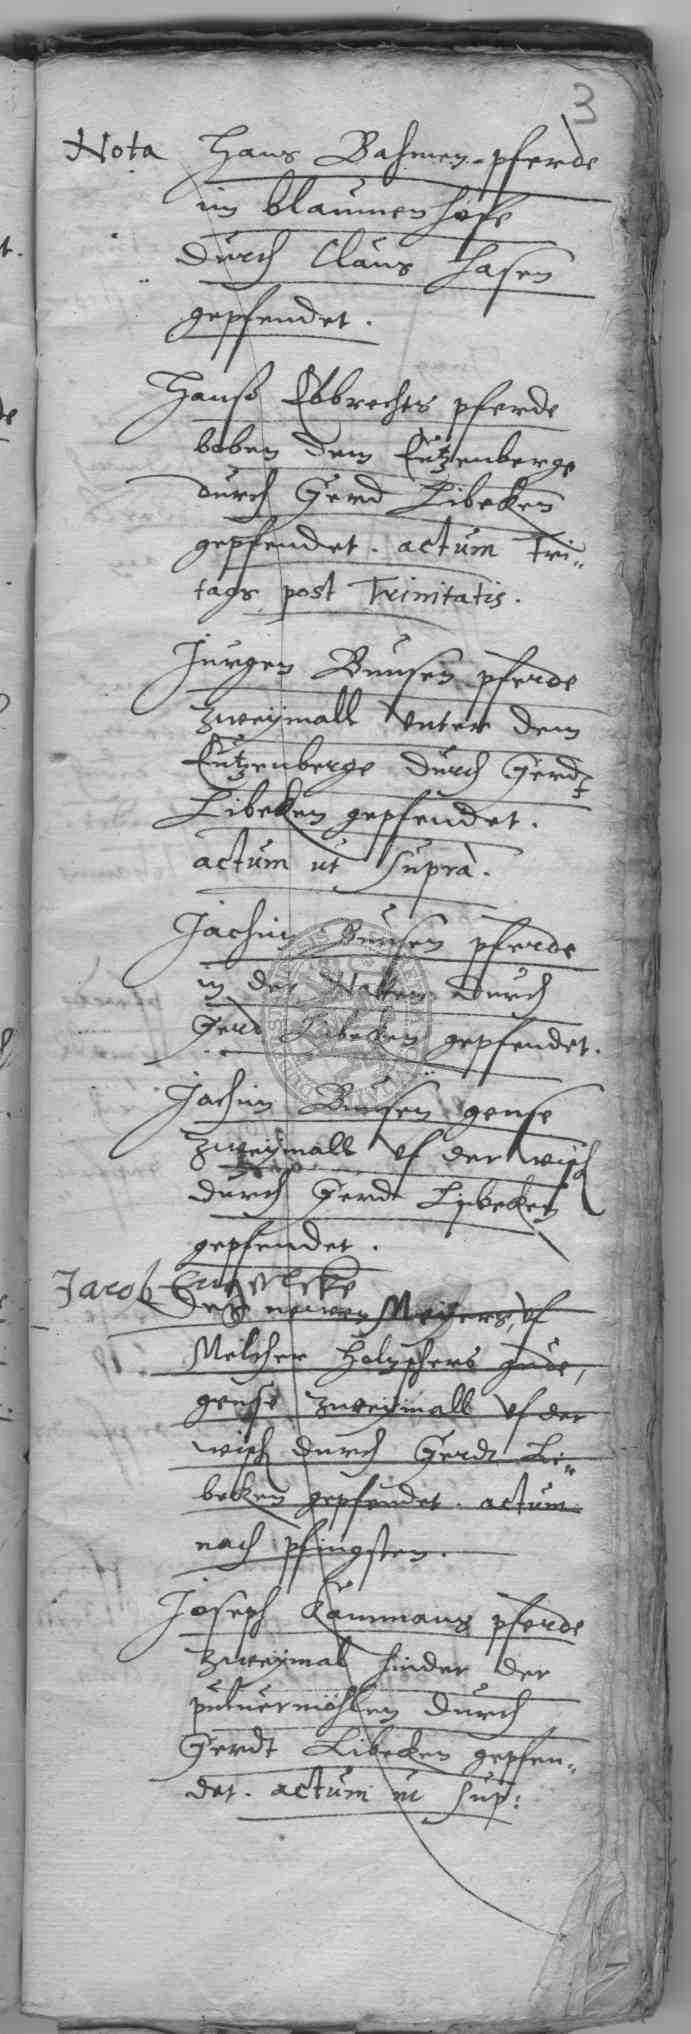 3
Nota Hans Bahmen pferde
im blaumenhofe
durch Claus Hasen
gepfendet.
Hanß Ebbrechts pferde
boben dem Lützenberge
durch Gerd Libeken
gepfendet. actum Fri-
tags post Trinitatis.
Jurgen Bunsen pferde
zweymall unter dem
Lützenberge durch Gerdt
Libeken gepfendet.
actum ut supra.
Jachim Bunsen pferde
in der durch
Gerd Libeken gepfendet.
Jachim Bunsen gense
zweymall uf der wisch
durch Gerdt Libeken
gepfendet.
Jacob
des newen Meyers, uf
Melcher gude,
gense zweymall uf der
wisch durch Gerdt Li-
beken gepfendet. actum
nach pfingsten.
Joseph pferde
zweymal hinder der
puluermöhlen durch
Gerdt Libeken gepfen-
det. actum ut sup: